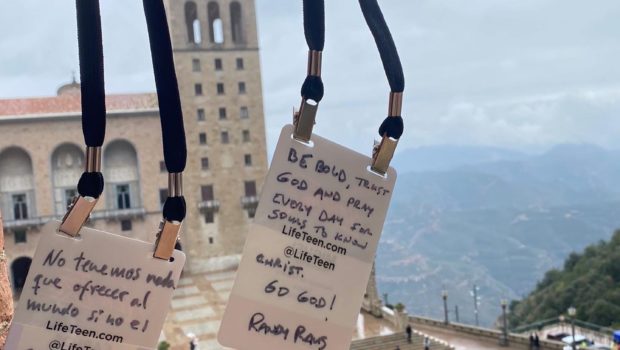 No tenemos nada
que ofrecer al
mundo si no el
LifeTeen.com
@LifeTeen
BE BOLD, TRUST
GOD AND PRAY
EVERY DAY FOR
SOULS TO KNOW
LifeTeen.com
@LifeTeen
CHRIST.
GO GOD!
RANDY RAUS